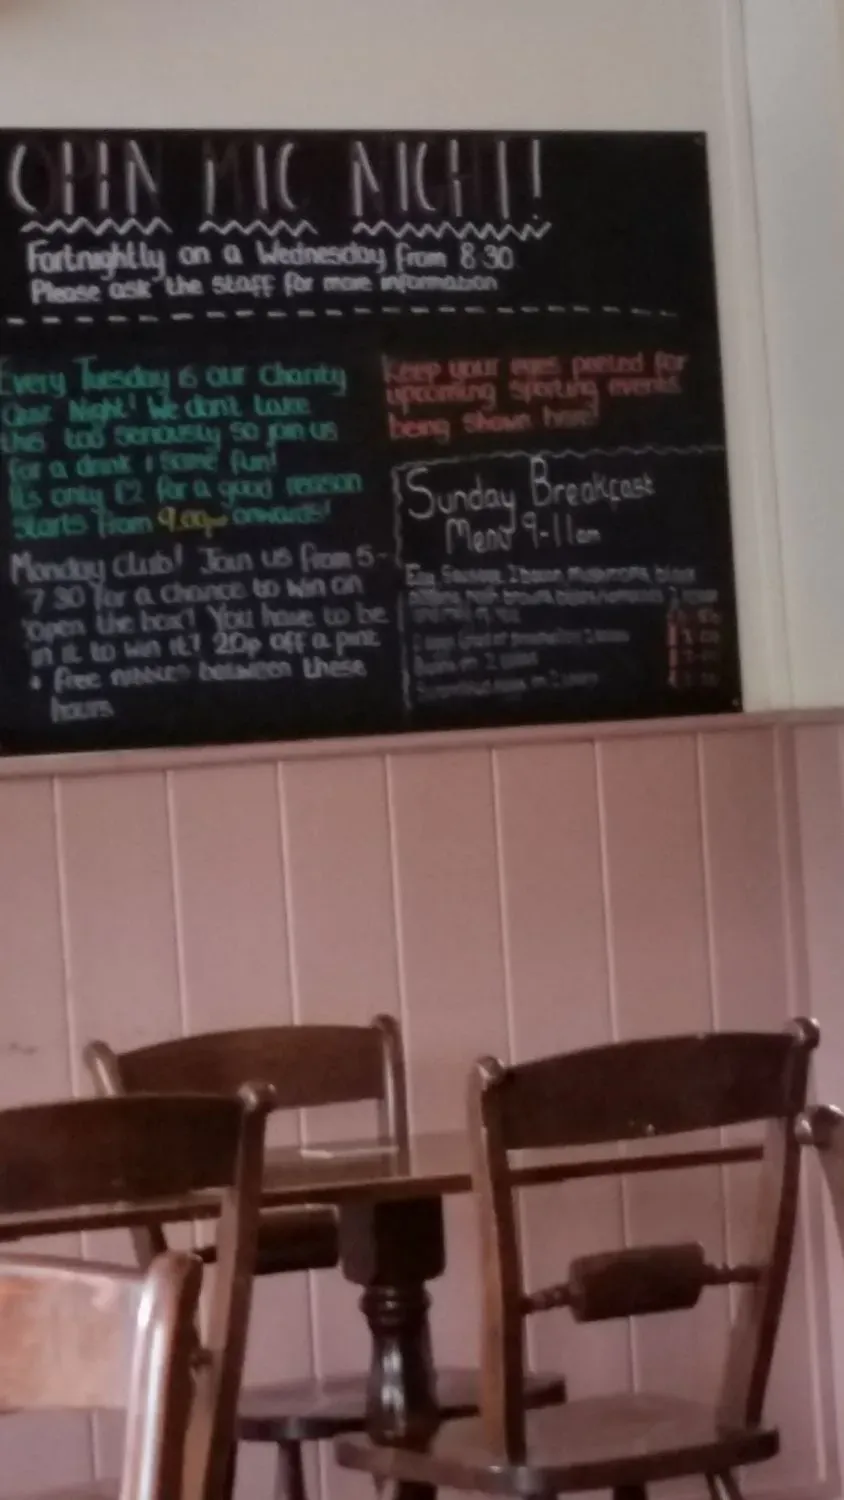 OPEN MIC NIGHT!
Fortnightly on a Wednesday from 8.30
Please ask the staff for more information
Every Tuesday is our charity
Quiz Night! We don't take
this too seriously so join us
for a drink & some fun!
Its only £2 for a good reason
Starts from 9.00pm onwards!
Monday club! Join us from 5-
7.30 for a chance to win on
'open the box'! You have to be
in it to win it! 20p off a pint
+ free nibbles between these
hours
Keep your eyes peeled for
upcoming sporting events
being shown here!
Sunday Breakfast
Menu 9-11am
Egg, Sausage, 2 bacon, Mushrooms, black
2 toast